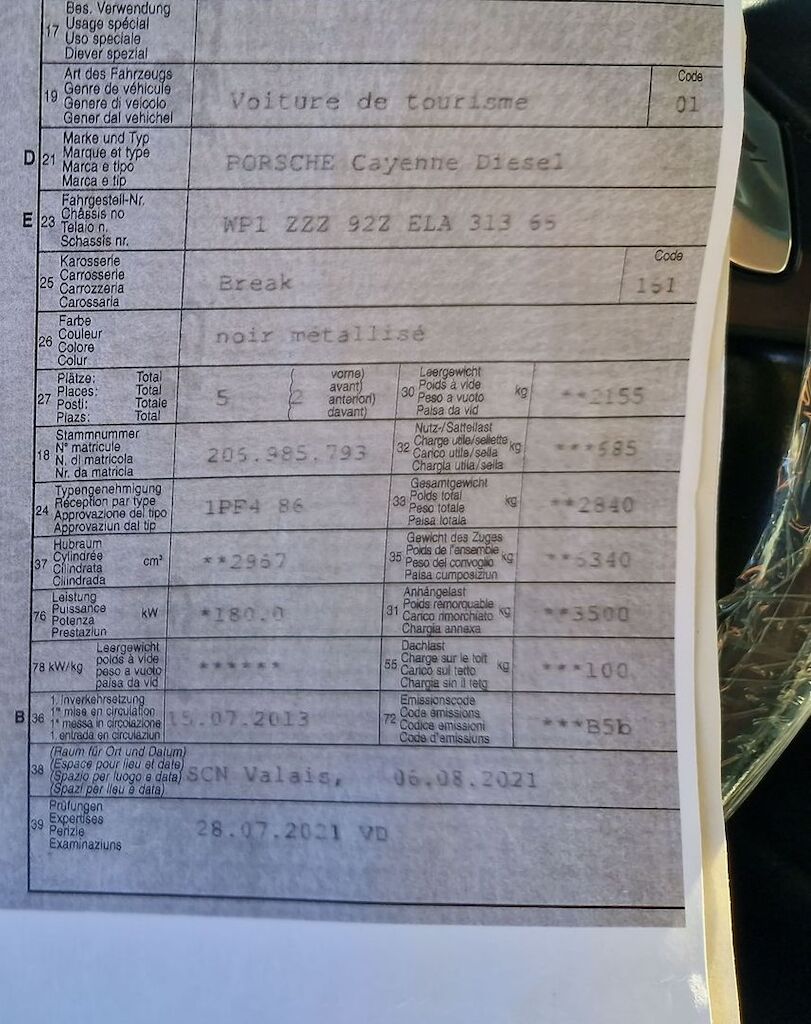 17 Bes. Verwendung
Usage spécial
Uso speciale
Diever spezial
19 Art des Fahrzeugs
Genre de véhicule
Genere di veicolo
Gener dal vehichel
Voiture de tourisme
Code
01
D 21 Marke und Typ
Marque et type
Marca e tipo
Marca e tip
PORSCHE Cayenne Diesel
E 23 Fahrgestell-Nr.
Châssis no
Telaio n.
Schassis nr.
WP1 ZZZ 92Z ELA 313 65
25 Karosserie
Carrosserie
Carrozzeria
Carossaria
Break
Code
151
26 Farbe
Couleur
Colore
Colur
noir métallisé
27 Plätze: Total
Places: Total
Posti: Totale
Plazs: Total
5
2
vorne)
avant)
anteriori)
davant)
30 Leergewicht
Poids à vide
Peso a vuoto
Paisa da vid
kg
**2155
18 Stammnummer
N° matricule
N. di matricola
Nr. da matricla
205.985.793
32 Nutz-/Sattellast
Charge utile/sellette
Carico utile/sella
Chargia utila/sella
kg
***685
24 Typengenehmigung
Réception par type
Approvazione del tipo
Approvaziun dal tip
1PF4 86
33 Gesamtgewicht
Poids total
Peso totale
Paisa totala
kg
**2840
37 Hubraum
Cylindrée
Cilindrata
Cilindrada
cm³
**2967
35 Gewicht des Zuges
Poids de l'ensemble
Peso del convoglio
Paisa cumposiziun
kg
**6340
76 Leistung
Puissance
Potenza
Prestaziun
kW
*180.0
31 Anhängelast
Poids remorquable
Carico rimorchiato
Chargia annexa
kg
**3500
78 kW/kg
Leergewicht
poids à vide
peso a vuoto
paisa da vid
******
55 Dachlast
Charge sur le toit
Carico sul tetto
Chargia sin il tetg
kg
***100
B 36 1. Inverkehrsetzung
1re mise en circulation
1a messa in circolazione
1. entrada en circulaziun
15.07.2013
72 Emissionscode
Code émissions
Codice emissioni
Code d'emissiuns
***B5b
38 (Raum für Ort und Datum)
(Espace pour lieu et date)
(Spazio per luogo e data)
(Spazi per lieu e data)
SCN Valais, 06.08.2021
39 Prüfungen
Expertises
Perizie
Examinaziuns
28.07.2021 VD